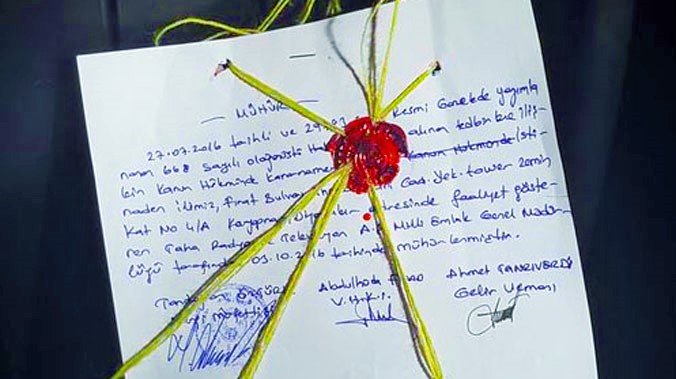 MÜHÜR
27.07.2016 tarihli ve 29 Resmi Gazetede yayımla
nan 668 Sayılı olağanüstü Ha alınan tedbirlere iliş-
kin Kanun Hükmünde Kararname Kanun Hükmünde isti-
naden ilimiz, Fırat Bulvarı Cad. Yek. tower zemin
Kat No 4/A Kayapınar/Diyarbakır adresinde faaliyet göste-
ren Taha Radyo Televizyon A.Ş. Milli Emlak Genel Müdür-
lüğü tarafından 03.10.2016 tarihinde mühürlenmiştir.
Abdulhada Ahmet TANRIVERDİ
V.H.K.İ. Gelir Uzmanı